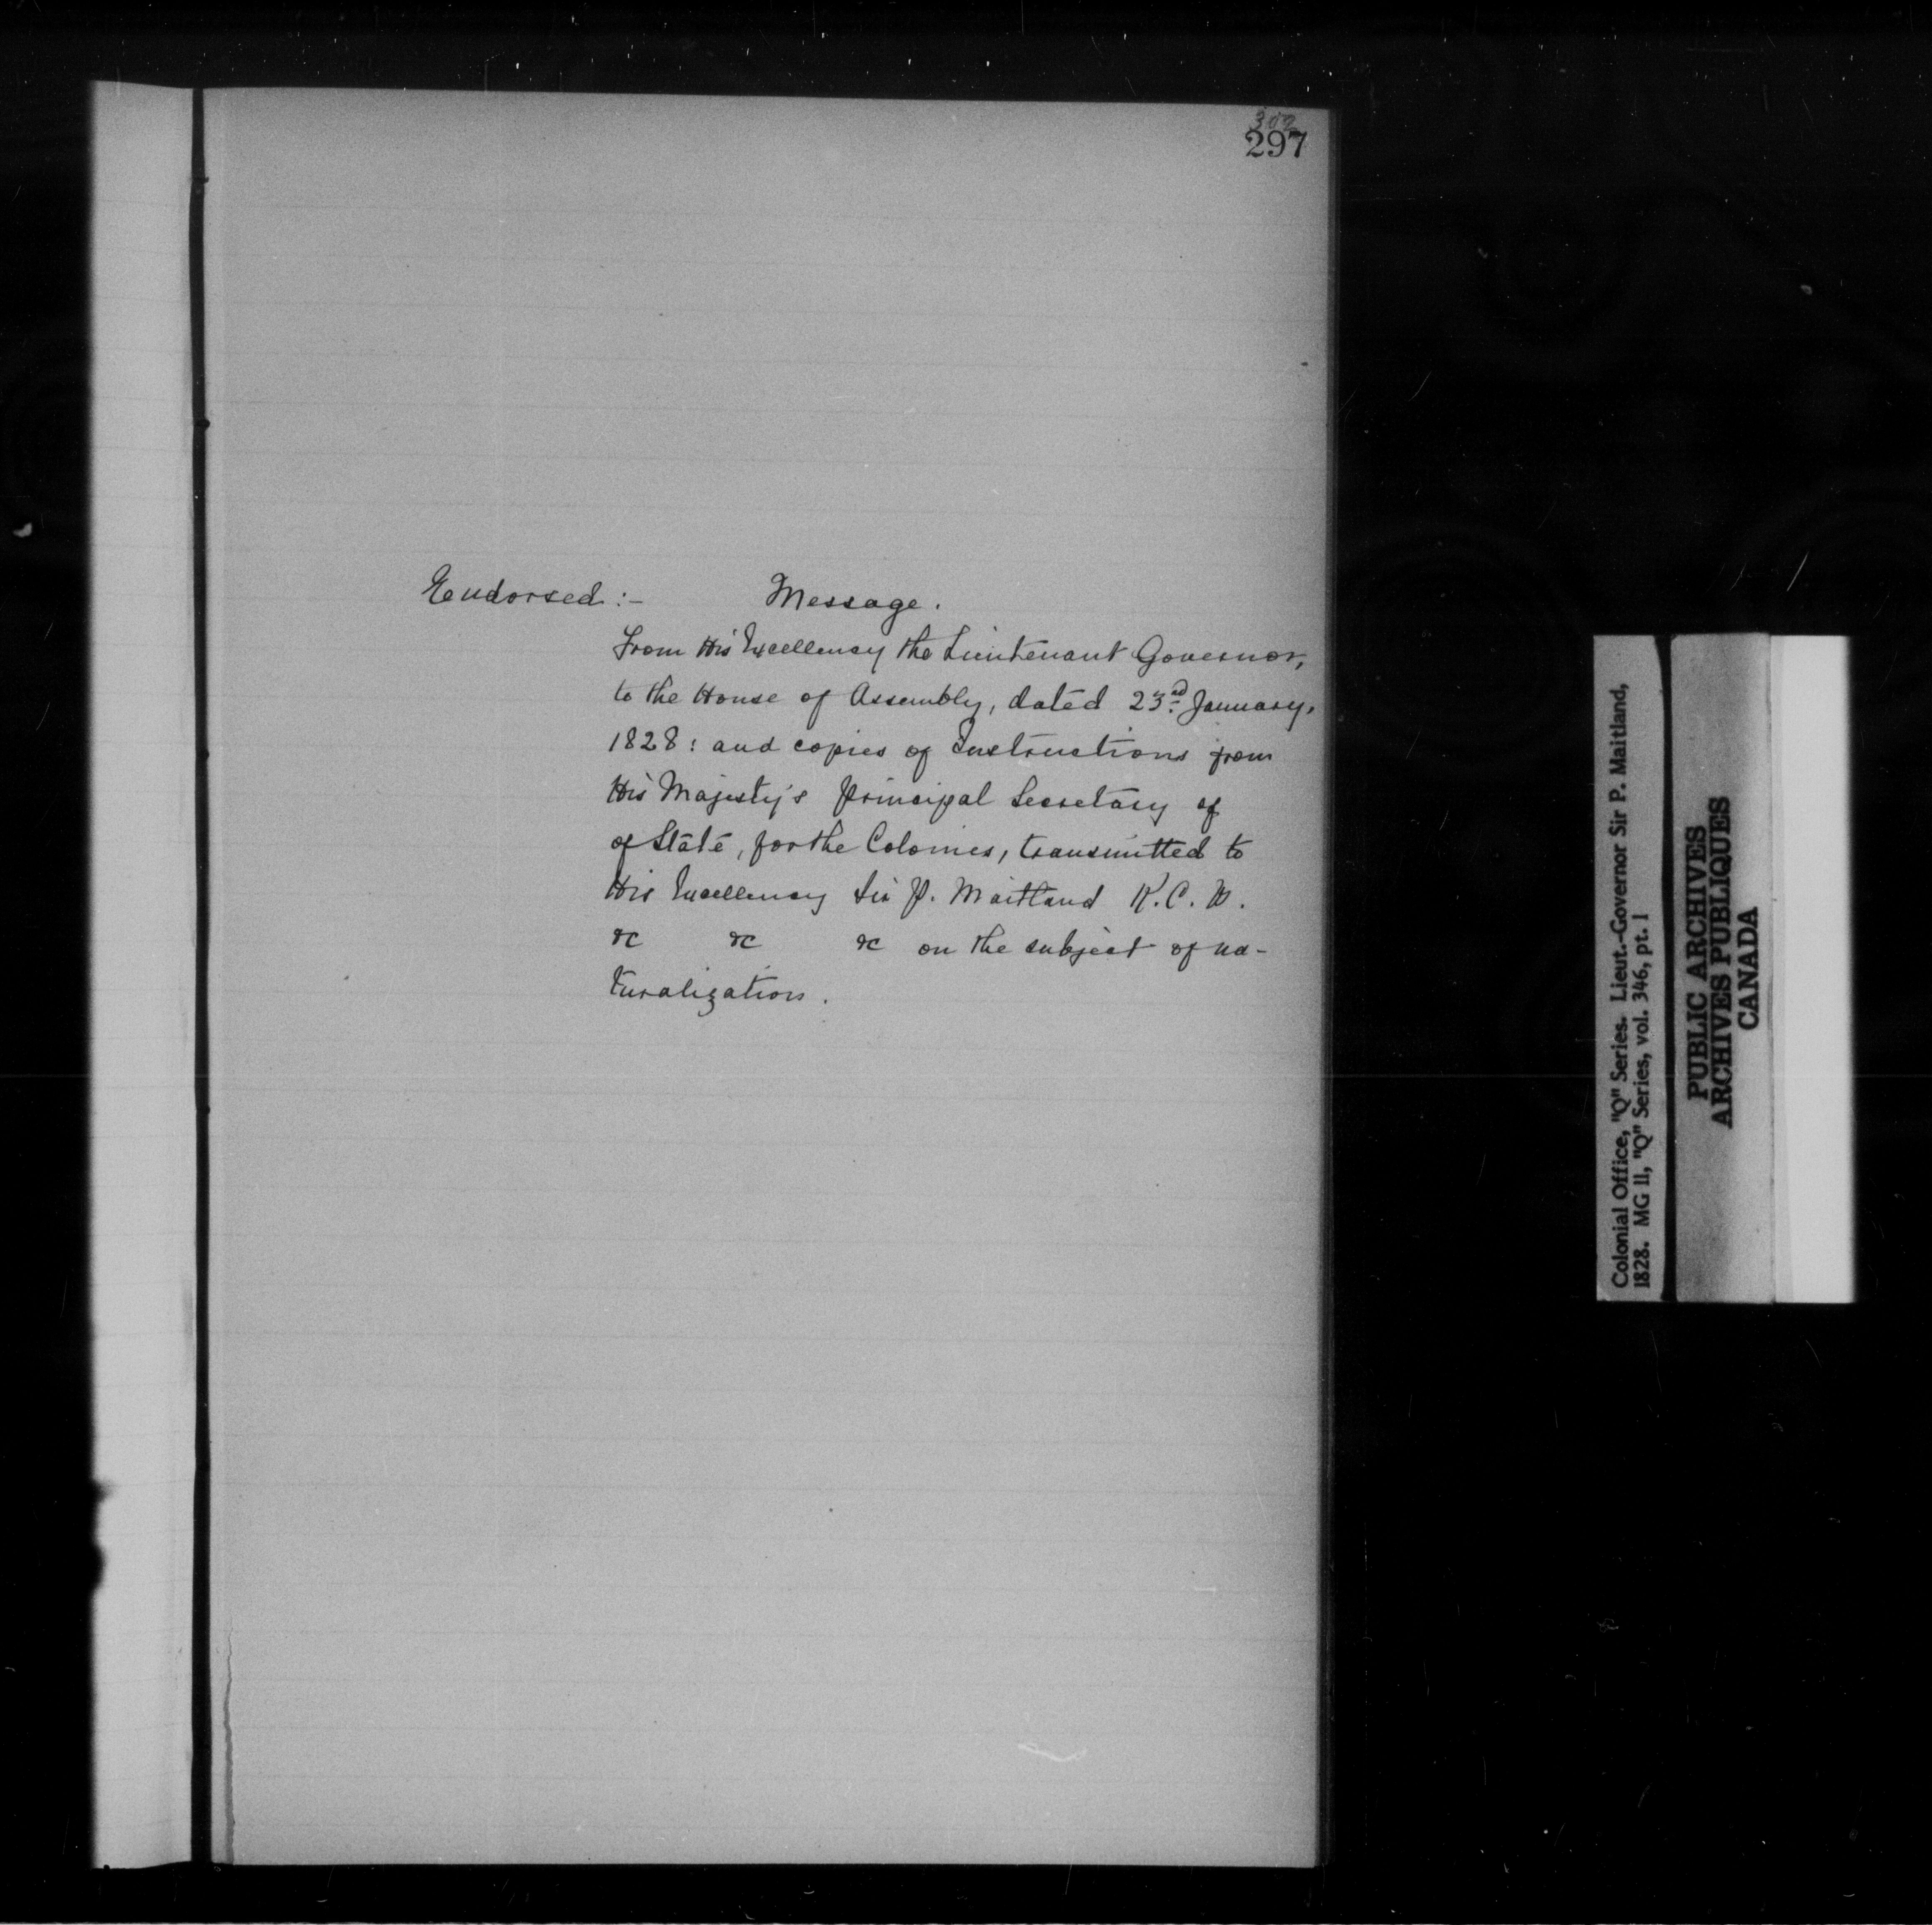 302
297
Endorsed:- Message.
From His Excellency the Lieutenant Governor,
to the House of Assembly, dated 23rd January,
1828: and copies of Instructions from
His Majesty's Principal Secretary of
of State, for the Colonies, transmitted to
His Excellency Sir P. Maitland K.C.B.
&c &c &c on the subject of na-
turalization.
Colonial Office, "Q" Series. Lieut.-Governor Sir P. Maitland,
1828. MG 11, "Q" Series, vol. 346, pt. 1
PUBLIC ARCHIVES
ARCHIVES PUBLIQUES
CANADA